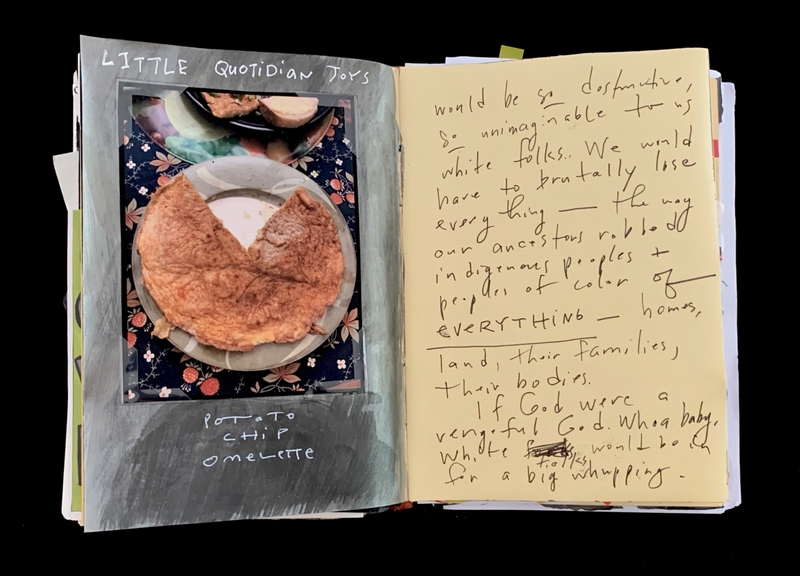 LITTLE QUOTIDIAN JOYS
POTATO
CHIP
OMELETTE
would be so destructive,
so unimaginable to us
white folks.. We would
have to brutally lose
everything — the way
our ancestors robbed
indigenous peoples +
peoples of color of —
EVERYTHING — homes,
land, their families,
their bodies.
If God were a
vengeful God. Whoa baby.
White folks would be in
for a big whupping.